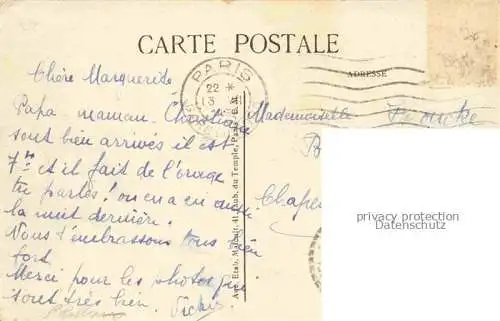 CARTE POSTALE
ADRESSE
PARIS
22 *
13
Chère Marguerite
Papa maman. Christiane
sont bien arrivés il est
7h et il fait de l'orage
tu parles! on en a eu aussi
la nuit dernière.
Nous t'embrassons tous bien
fort
Merci pour les photos qui
sont très bien.
Mademoiselle
B
Chapel
41 Faub. du Temple, Paris
privacy protection
Datenschutz